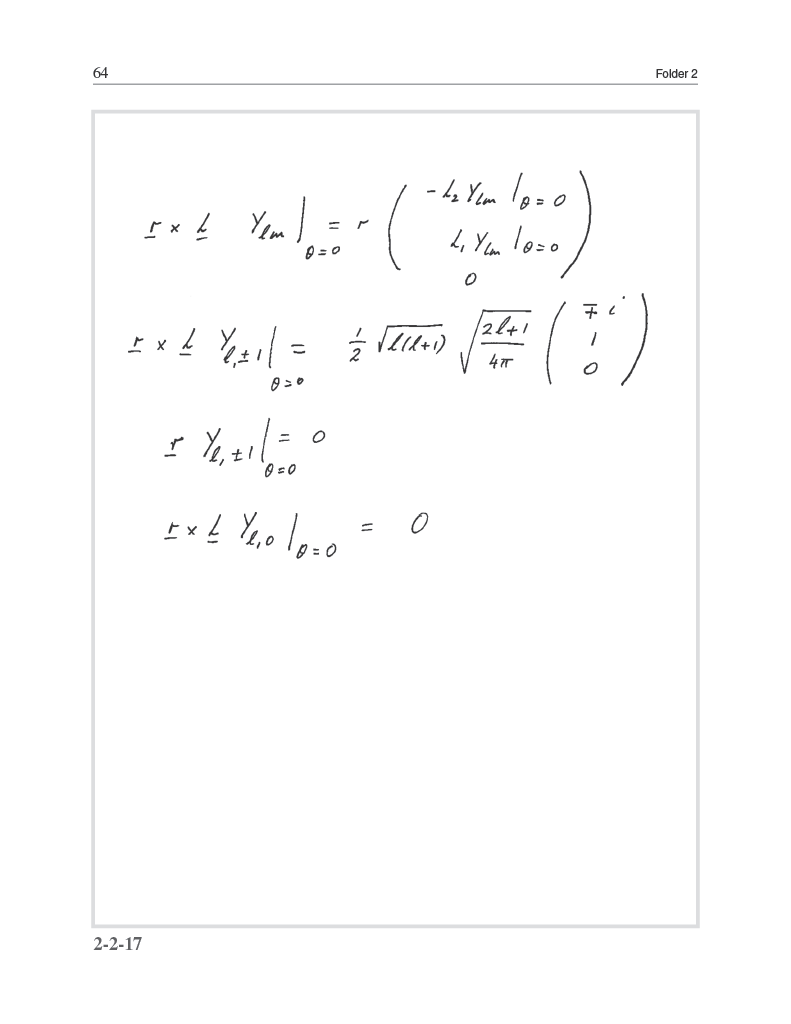 64 Folder 2
r × L Y_{lm} |_{θ=0} = r ( -L_2 Y_{lm} |_{θ=0}
L_1 Y_{lm} |_{θ=0}
0 )
r × L Y_{l,±1} |_{θ=0} = 1/2 √(l(l+1)) √((2l+1)/4π) ( ∓ i
1
0 )
r Y_{l,±1} |_{θ=0} = 0
r × L Y_{l,0} |_{θ=0} = 0
2-2-17